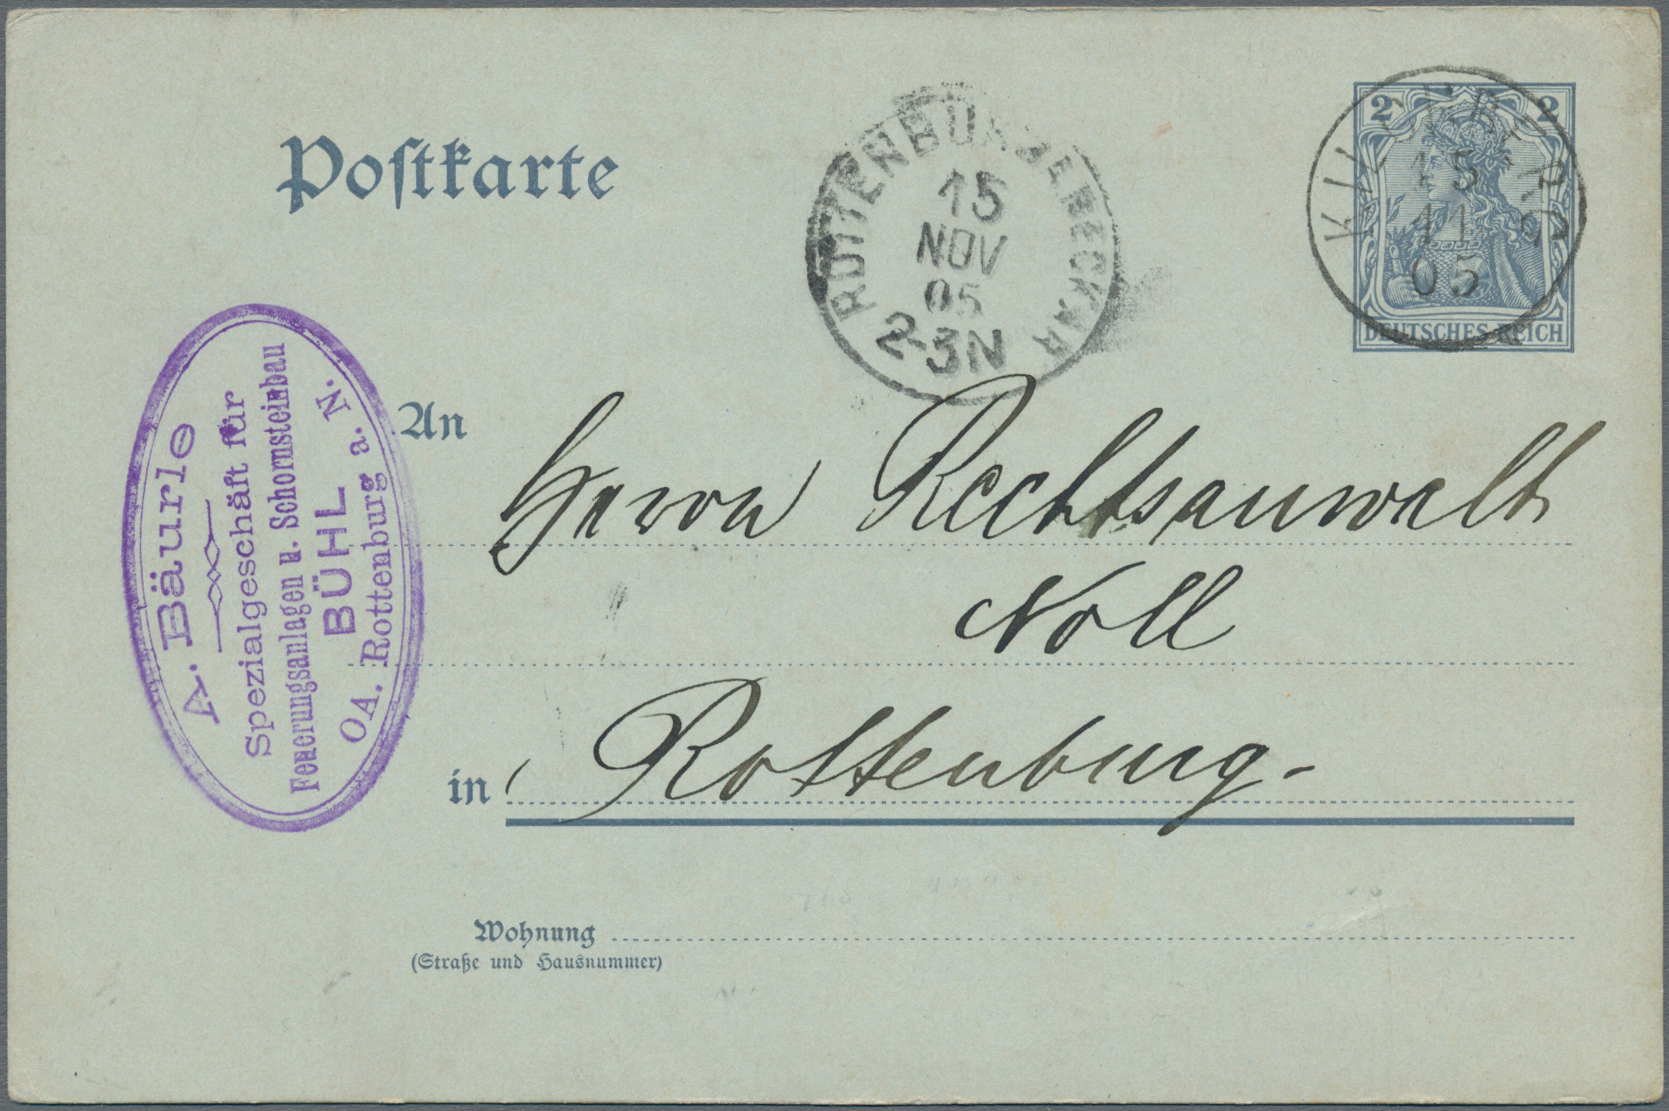 Postkarte
ROTTENBURG A. NECKAR
15
NOV
05
2-3N
2 2
DEUTSCHES REICH
KILCHBERG
15
11
05
A. Bäurle
Spezialgeschäft für
Feuerungsanlagen u. Schornsteinbau
BÜHL
OA. Rottenburg a. N.
An
Herrn Rechtsanwalt
Noll
in Rottenburg-
Wohnung
(Straße und Hausnummer)